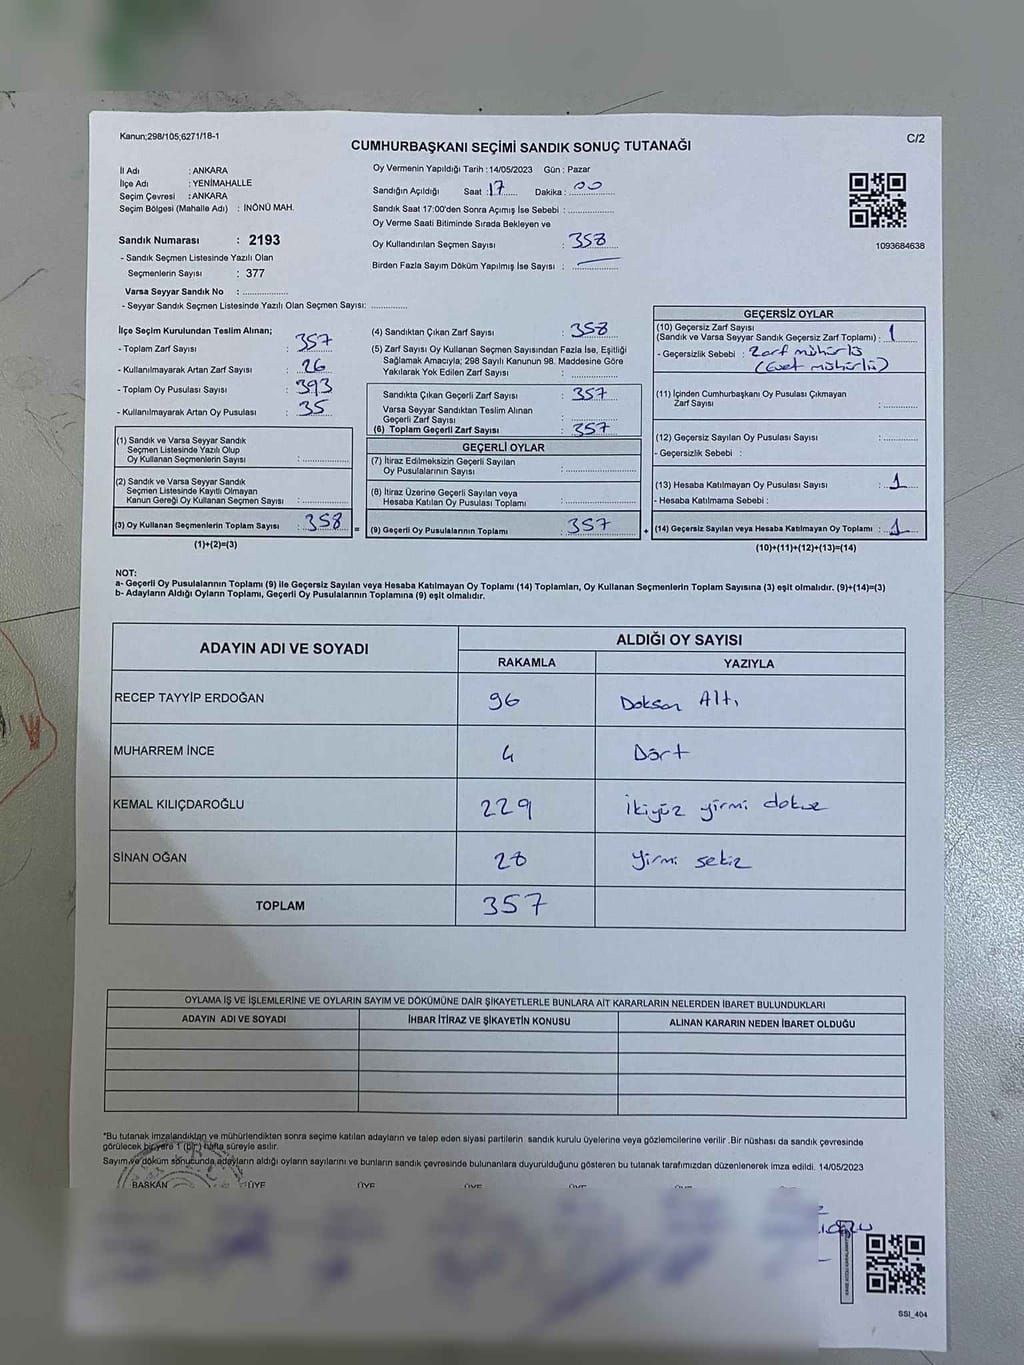 Kanun;298/105;6271/18-1
C/2
CUMHURBAŞKANI SEÇİMİ SANDIK SONUÇ TUTANAĞI
İl Adı : ANKARA
İlçe Adı : YENİMAHALLE
Seçim Çevresi : ANKARA
Seçim Bölgesi (Mahalle Adı) : İNÖNÜ MAH.
Sandık Numarası : 2193
- Sandık Seçmen Listesinde Yazılı Olan
Seçmenlerin Sayısı : 377
Varsa Seyyar Sandık No :
- Seyyar Sandık Seçmen Listesinde Yazılı Olan Seçmen Sayısı:
Oy Vermenin Yapıldığı Tarih :14/05/2023 Gün : Pazar
Sandığın Açıldığı Saat : 17 Dakika : 00
Sandık Saat 17:00'den Sonra Açımış İse Sebebi :
Oy Verme Saati Bitiminde Sırada Bekleyen ve
Oy Kullandırılan Seçmen Sayısı : 358
Birden Fazla Sayım Döküm Yapılmış İse Sayısı :
1093684638
İlçe Seçim Kurulundan Teslim Alınan;
- Toplam Zarf Sayısı : 357
- Kullanılmayarak Artan Zarf Sayısı : 26
- Toplam Oy Pusulası Sayısı : 393
- Kullanılmayarak Artan Oy Pusulası : 35
(1) Sandık ve Varsa Seyyar Sandık
Seçmen Listesinde Yazılı Olup
Oy Kullanan Seçmenlerin Sayısı :
(2) Sandık ve Varsa Seyyar Sandık
Seçmen Listesinde Kayıtlı Olmayan
Kanun Gereği Oy Kullanan Seçmen Sayısı :
(3) Oy Kullanan Seçmenlerin Toplam Sayısı : 358
(1)+(2)=(3)
=
(4) Sandıktan Çıkan Zarf Sayısı : 358
(5) Zarf Sayısı Oy Kullanan Seçmen Sayısından Fazla İse, Eşitliği
Sağlamak Amacıyla; 298 Sayılı Kanunun 98. Maddesine Göre
Yakılarak Yok Edilen Zarf Sayısı :
Sandıkta Çıkan Geçerli Zarf Sayısı : 357
Varsa Seyyar Sandıktan Teslim Alınan
Geçerli Zarf Sayısı :
(6) Toplam Geçerli Zarf Sayısı : 357
GEÇERLİ OYLAR
(7) İtiraz Edilmeksizin Geçerli Sayılan
Oy Pusulalarının Sayısı :
(8) İtiraz Üzerine Geçerli Sayılan veya
Hesaba Katılan Oy Pusulası Toplamı :
(9) Geçerli Oy Pusulalarının Toplamı : 357
+
GEÇERSİZ OYLAR
(10) Geçersiz Zarf Sayısı
(Sandık ve Varsa Seyyar Sandık Geçersiz Zarf Toplamı) : 1
- Geçersizlik Sebebi : Zarf mühürlü
(Evet mühürlü)
(11) İçinden Cumhurbaşkanı Oy Pusulası Çıkmayan
Zarf Sayısı :
(12) Geçersiz Sayılan Oy Pusulası Sayısı :
- Geçersizlik Sebebi :
(13) Hesaba Katılmayan Oy Pusulası Sayısı : 1
- Hesaba Katılmama Sebebi :
(14) Geçersiz Sayılan veya Hesaba Katılmayan Oy Toplamı : 1
(10)+(11)+(12)+(13)=(14)
NOT:
a- Geçerli Oy Pusulalarının Toplamı (9) ile Geçersiz Sayılan veya Hesaba Katılmayan Oy Toplamı (14) Toplamları, Oy Kullanan Seçmenlerin Toplam Sayısına (3) eşit olmalıdır. (9)+(14)=(3)
b- Adayların Aldığı Oyların Toplamı, Geçerli Oy Pusulalarının Toplamına (9) eşit olmalıdır.
ADAYIN ADI VE SOYADI
ALDIĞI OY SAYISI
RAKAMLA YAZIYLA
RECEP TAYYİP ERDOĞAN 96 Doksan Altı
MUHARREM İNCE 4 Dört
KEMAL KILIÇDAROĞLU 229 ikiyüz yirmi dokuz
SİNAN OĞAN 28 yirmi sekiz
TOPLAM 357
OYLAMA İŞ VE İŞLEMLERİNE VE OYLARIN SAYIM VE DÖKÜMÜNE DAİR ŞİKAYETLERLE BUNLARA AİT KARARLARIN NELERDEN İBARET BULUNDUKLARI
ADAYIN ADI VE SOYADI İHBAR İTİRAZ VE ŞİKAYETİN KONUSU ALINAN KARARIN NEDEN İBARET OLDUĞU
*Bu tutanak imzalandıktan ve mühürlendikten sonra seçime katılan adayların ve talep eden siyasi partilerin sandık kurulu üyelerine veya gözlemcilerine verilir .Bir nüshası da sandık çevresinde
görülecek bir yere 1 (bir) hafta süreyle asılır.
Sayım ve döküm sonucunda adayların aldığı oyların sayılarını ve bunların sandık çevresinde bulunanlara duyurulduğunu gösteren bu tutanak tarafımızdan düzenlenerek imza edildi. 14/05/2023
BAŞKAN ÜYE ÜYE ÜYE ÜYE ÜYE
SSI_404